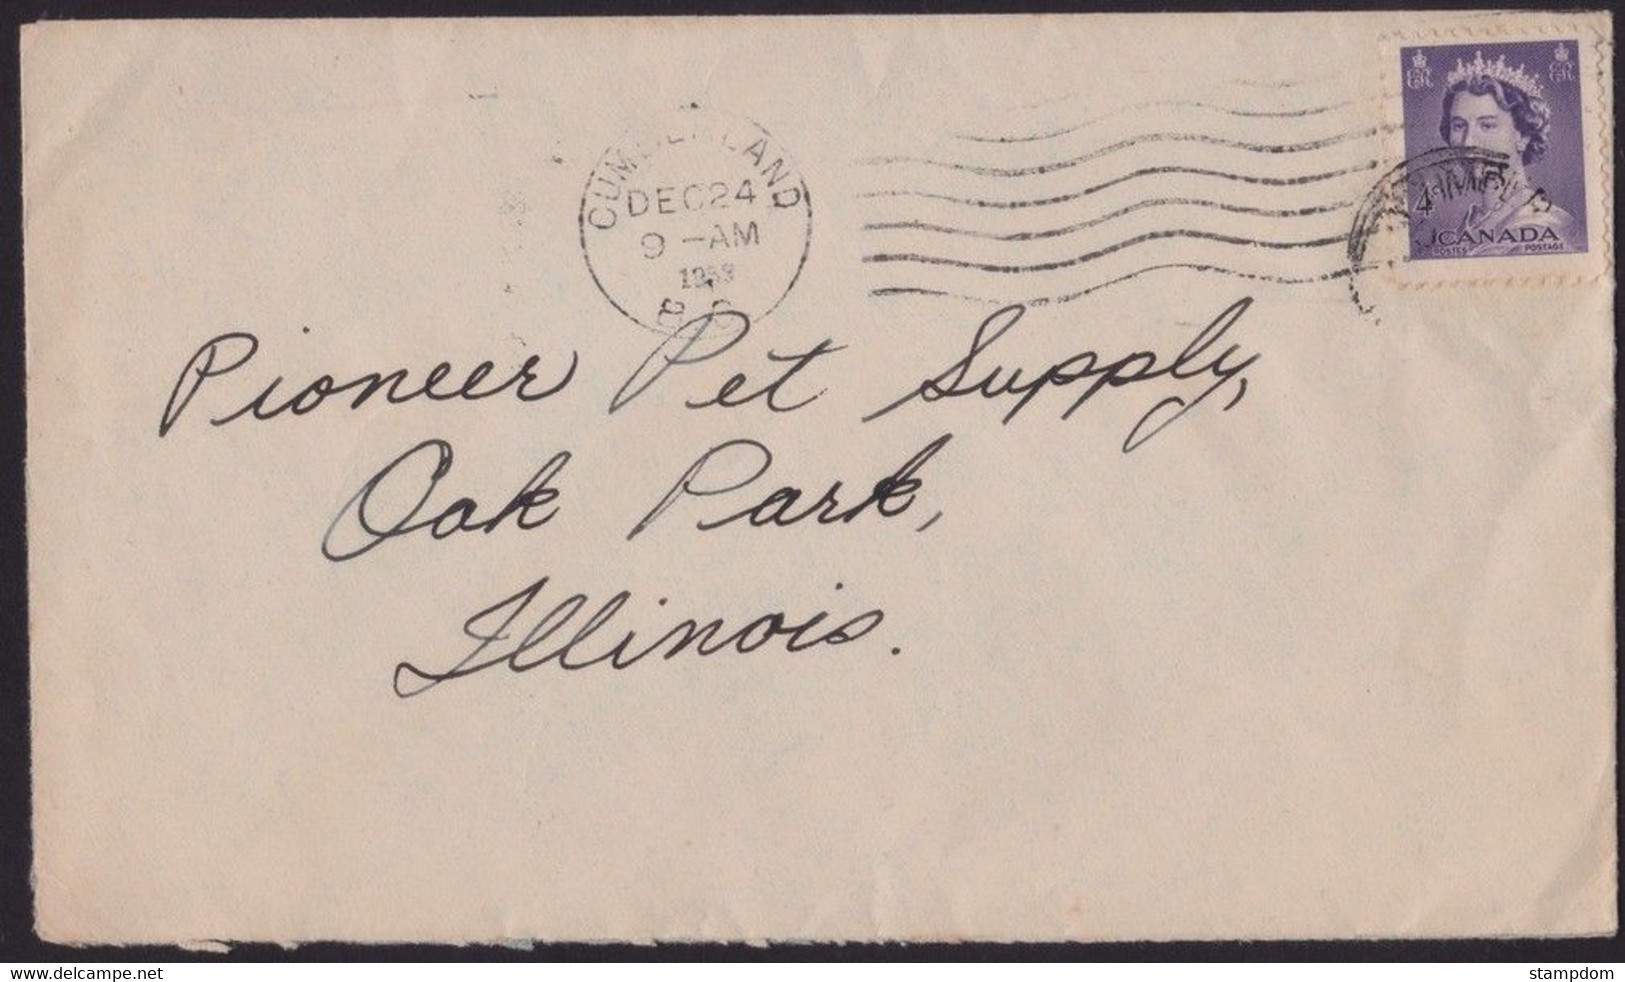 CUMBERLAND
DEC 24
9 -AM
1953
B C
ER
ER
4
CANADA
POSTES POSTAGE
Pioneer Pet Supply,
Oak Park,
Illinois.
www.delcampe.net
stampdom